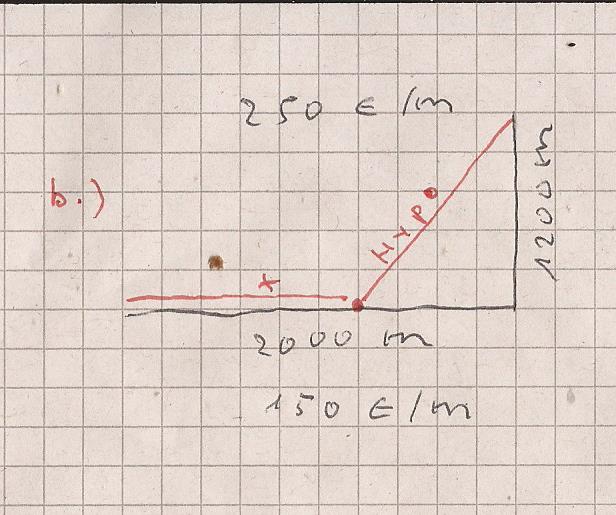 250 € /m
b.)
Hyp.
1200 m
x
2000 m
150 €/m